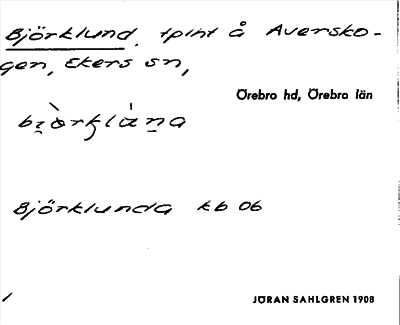 Björklund, tpint å Aversko-
gen, Ekers sn,
Örebro hd, Örebro län
Björklunda kb 06
JÖRAN SAHLGREN 1908